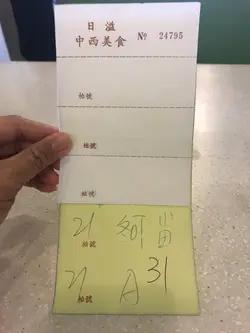 日溢
中西美食 № 24795
枱號
枱號
枱號
21
枱號
31
21 A
枱號